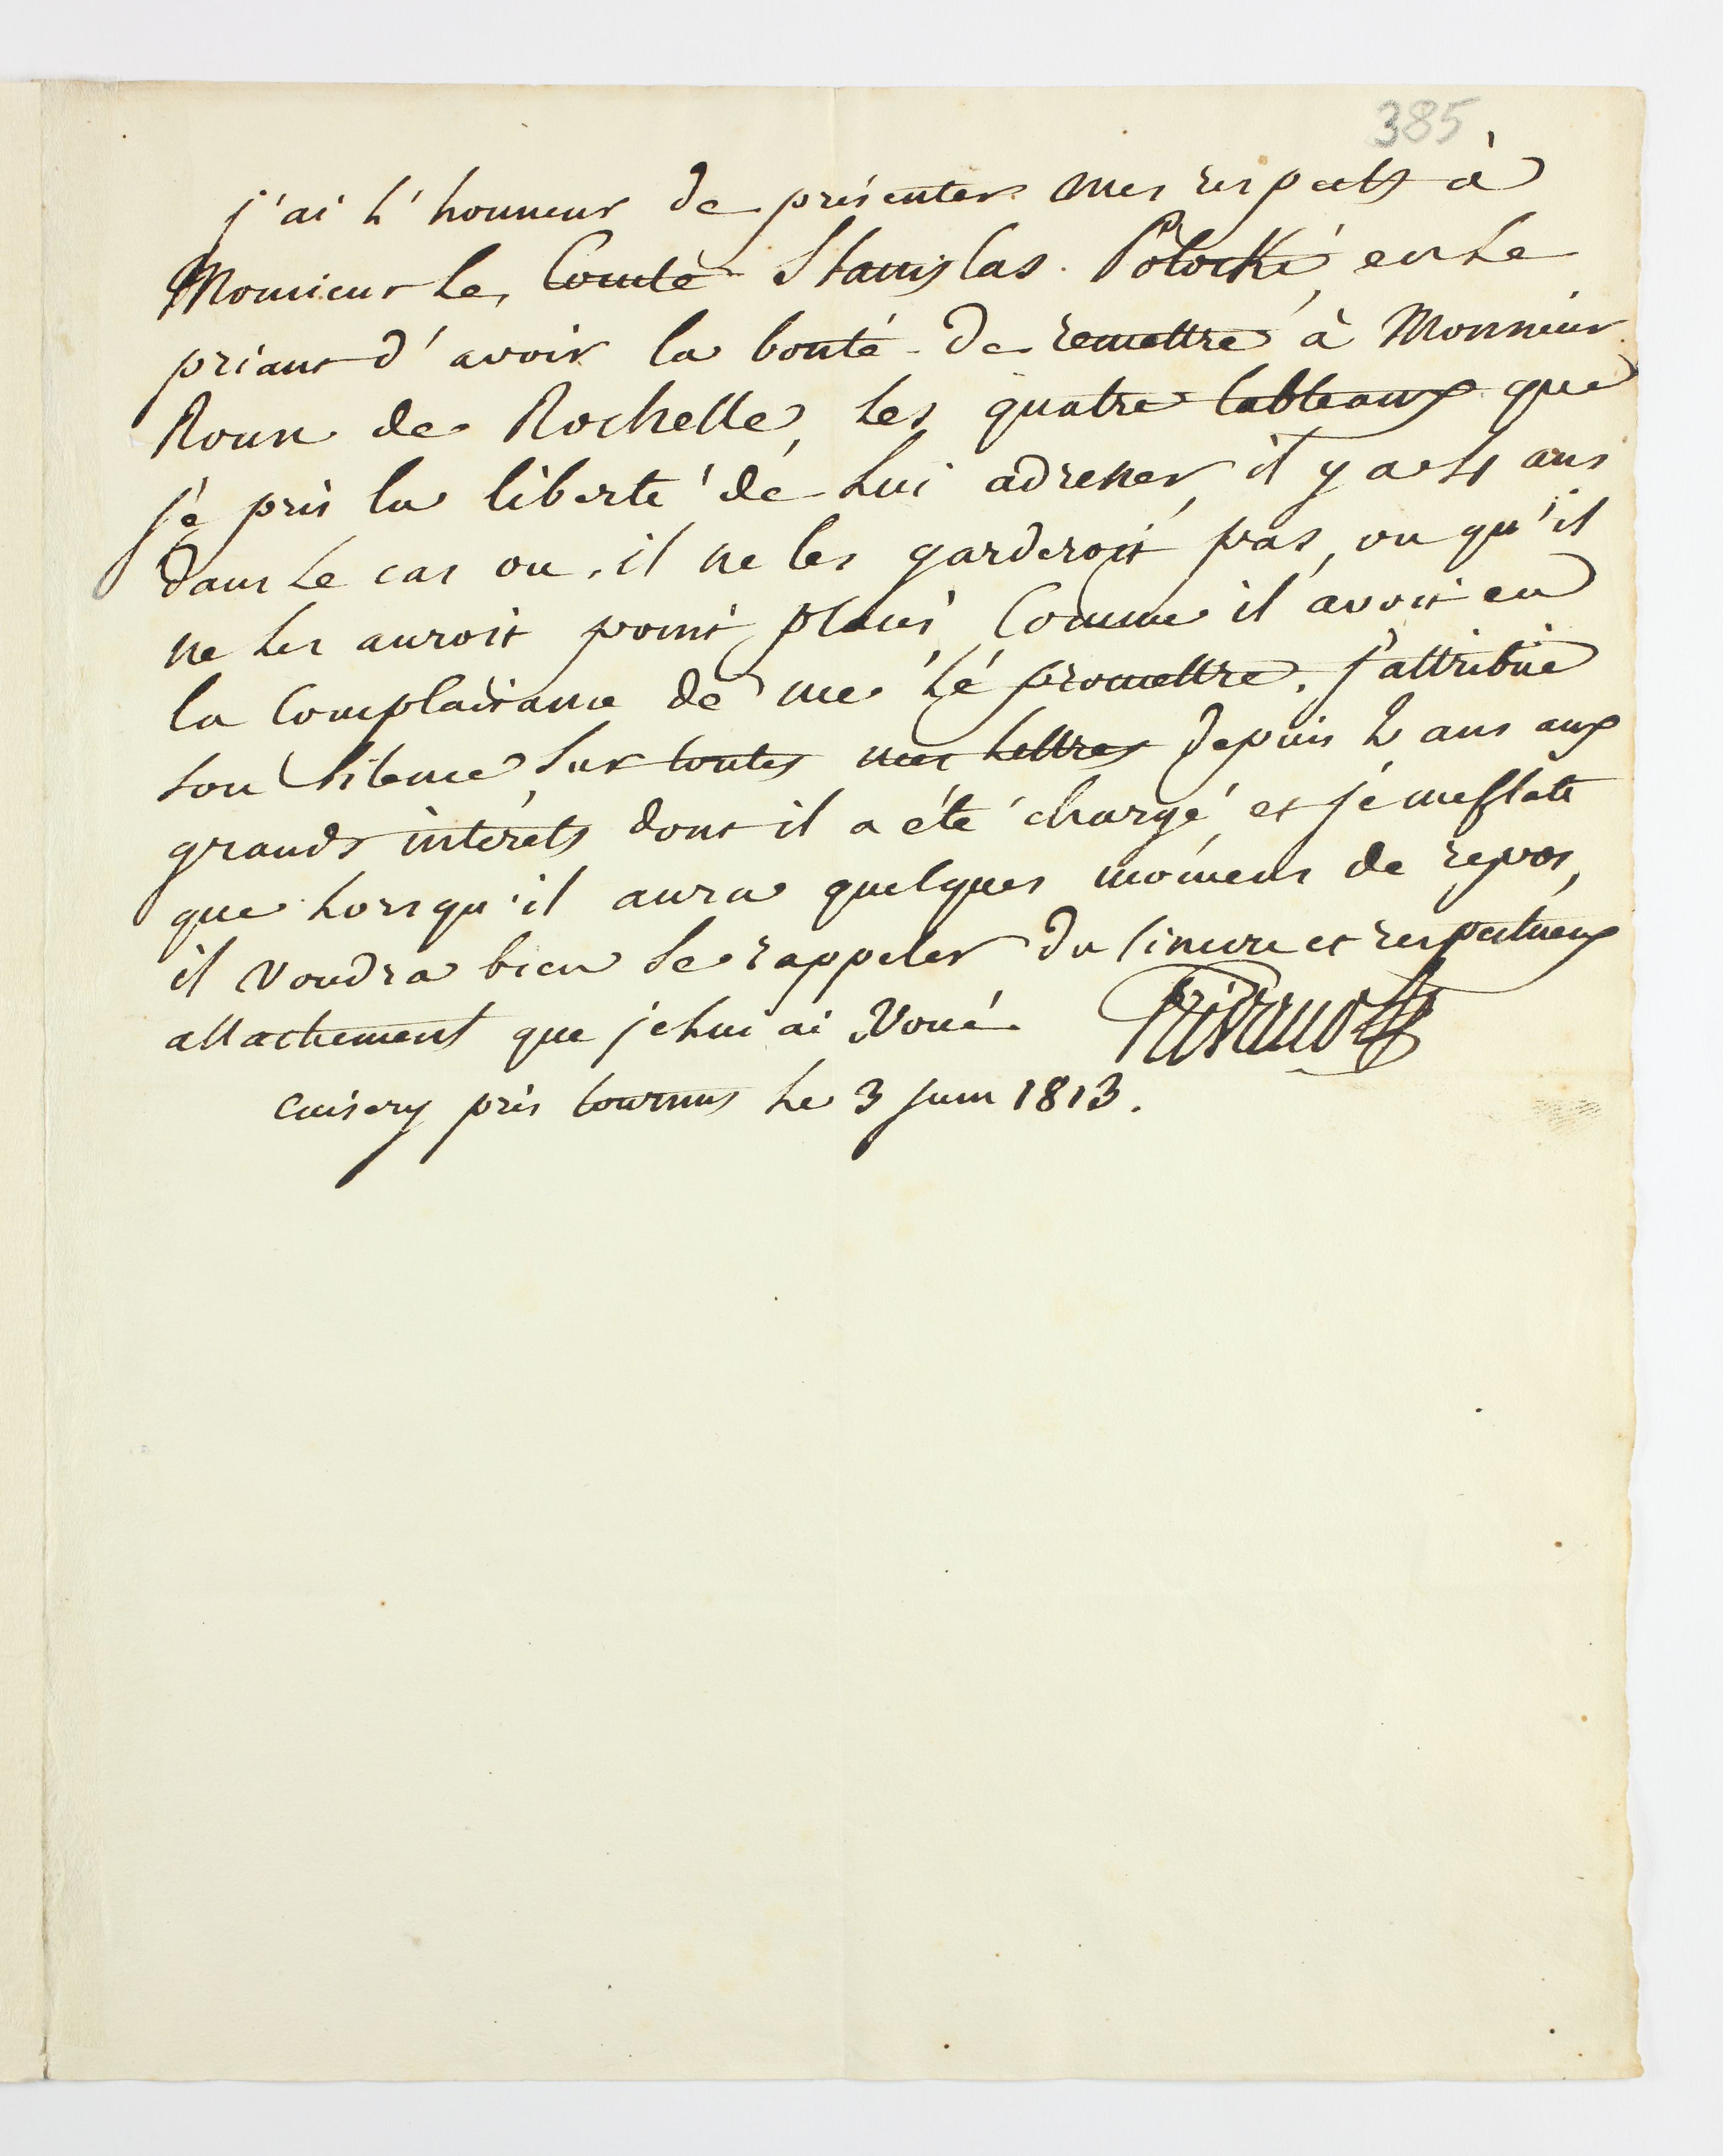 385
j'ai l'honneur de présenter mes respects à
Monsieur le Comte Stanislas Potocki, en le
priant d'avoir la bonté de remettre à Monsieur
Roux de Rochelle, les quatre tableaux que
je pris la liberté de lui adresser, il y a 4 ans
dans le cas ou, il ne les garderoit pas, ou qu'il
ne les auroit point placés, Comme il avoit eu
la Complaisance de me le promettre. j'attribue
son silence, sur toutes mes lettres depuis 2 ans aux
grands intérets dont il a été chargé, et je me flate
que lorsqu'il aura quelques momens de repos,
il voudra bien se rappeler du sincere et respectueux
attachement que je lui ai voué.
cuisery près tournus le 3 juin 1813.